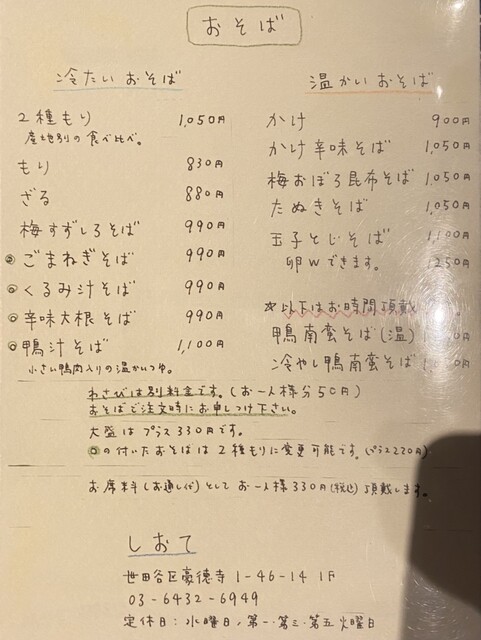 おそば
冷たいおそば
2種もり 1,050円
産地別の食べ比べ。
もり 830円
ざる 880円
梅すずしろそば 990円
◎ごまねぎそば 990円
◎くるみ汁そば 990円
◎辛味大根そば 990円
◎鴨汁そば 1,100円
小さい鴨肉入りの温かいつゆ。
温かいおそば
かけ 900円
かけ辛味そば 1,050円
梅おぼろ昆布そば 1,050円
たぬきそば 1,050円
玉子とじそば 1,100円
卵Wできます。 250円
※以下はお時間頂戴
鴨南蛮そば(温)
冷やし鴨南蛮そば
わさびは別料金です。(お一人様分50円)
おそばご注文時にお申しつけ下さい。
大盛はプラス330円です。
◎の付いたおそばは2種もりに変更可能です。(プラス220円)
お席料(お通し代)としてお一人様330円(税込)頂戴します。
しおて
世田谷区豪徳寺1-46-14 1F
03-6432-6949
定休日:水曜日,第一・第三・第五火曜日